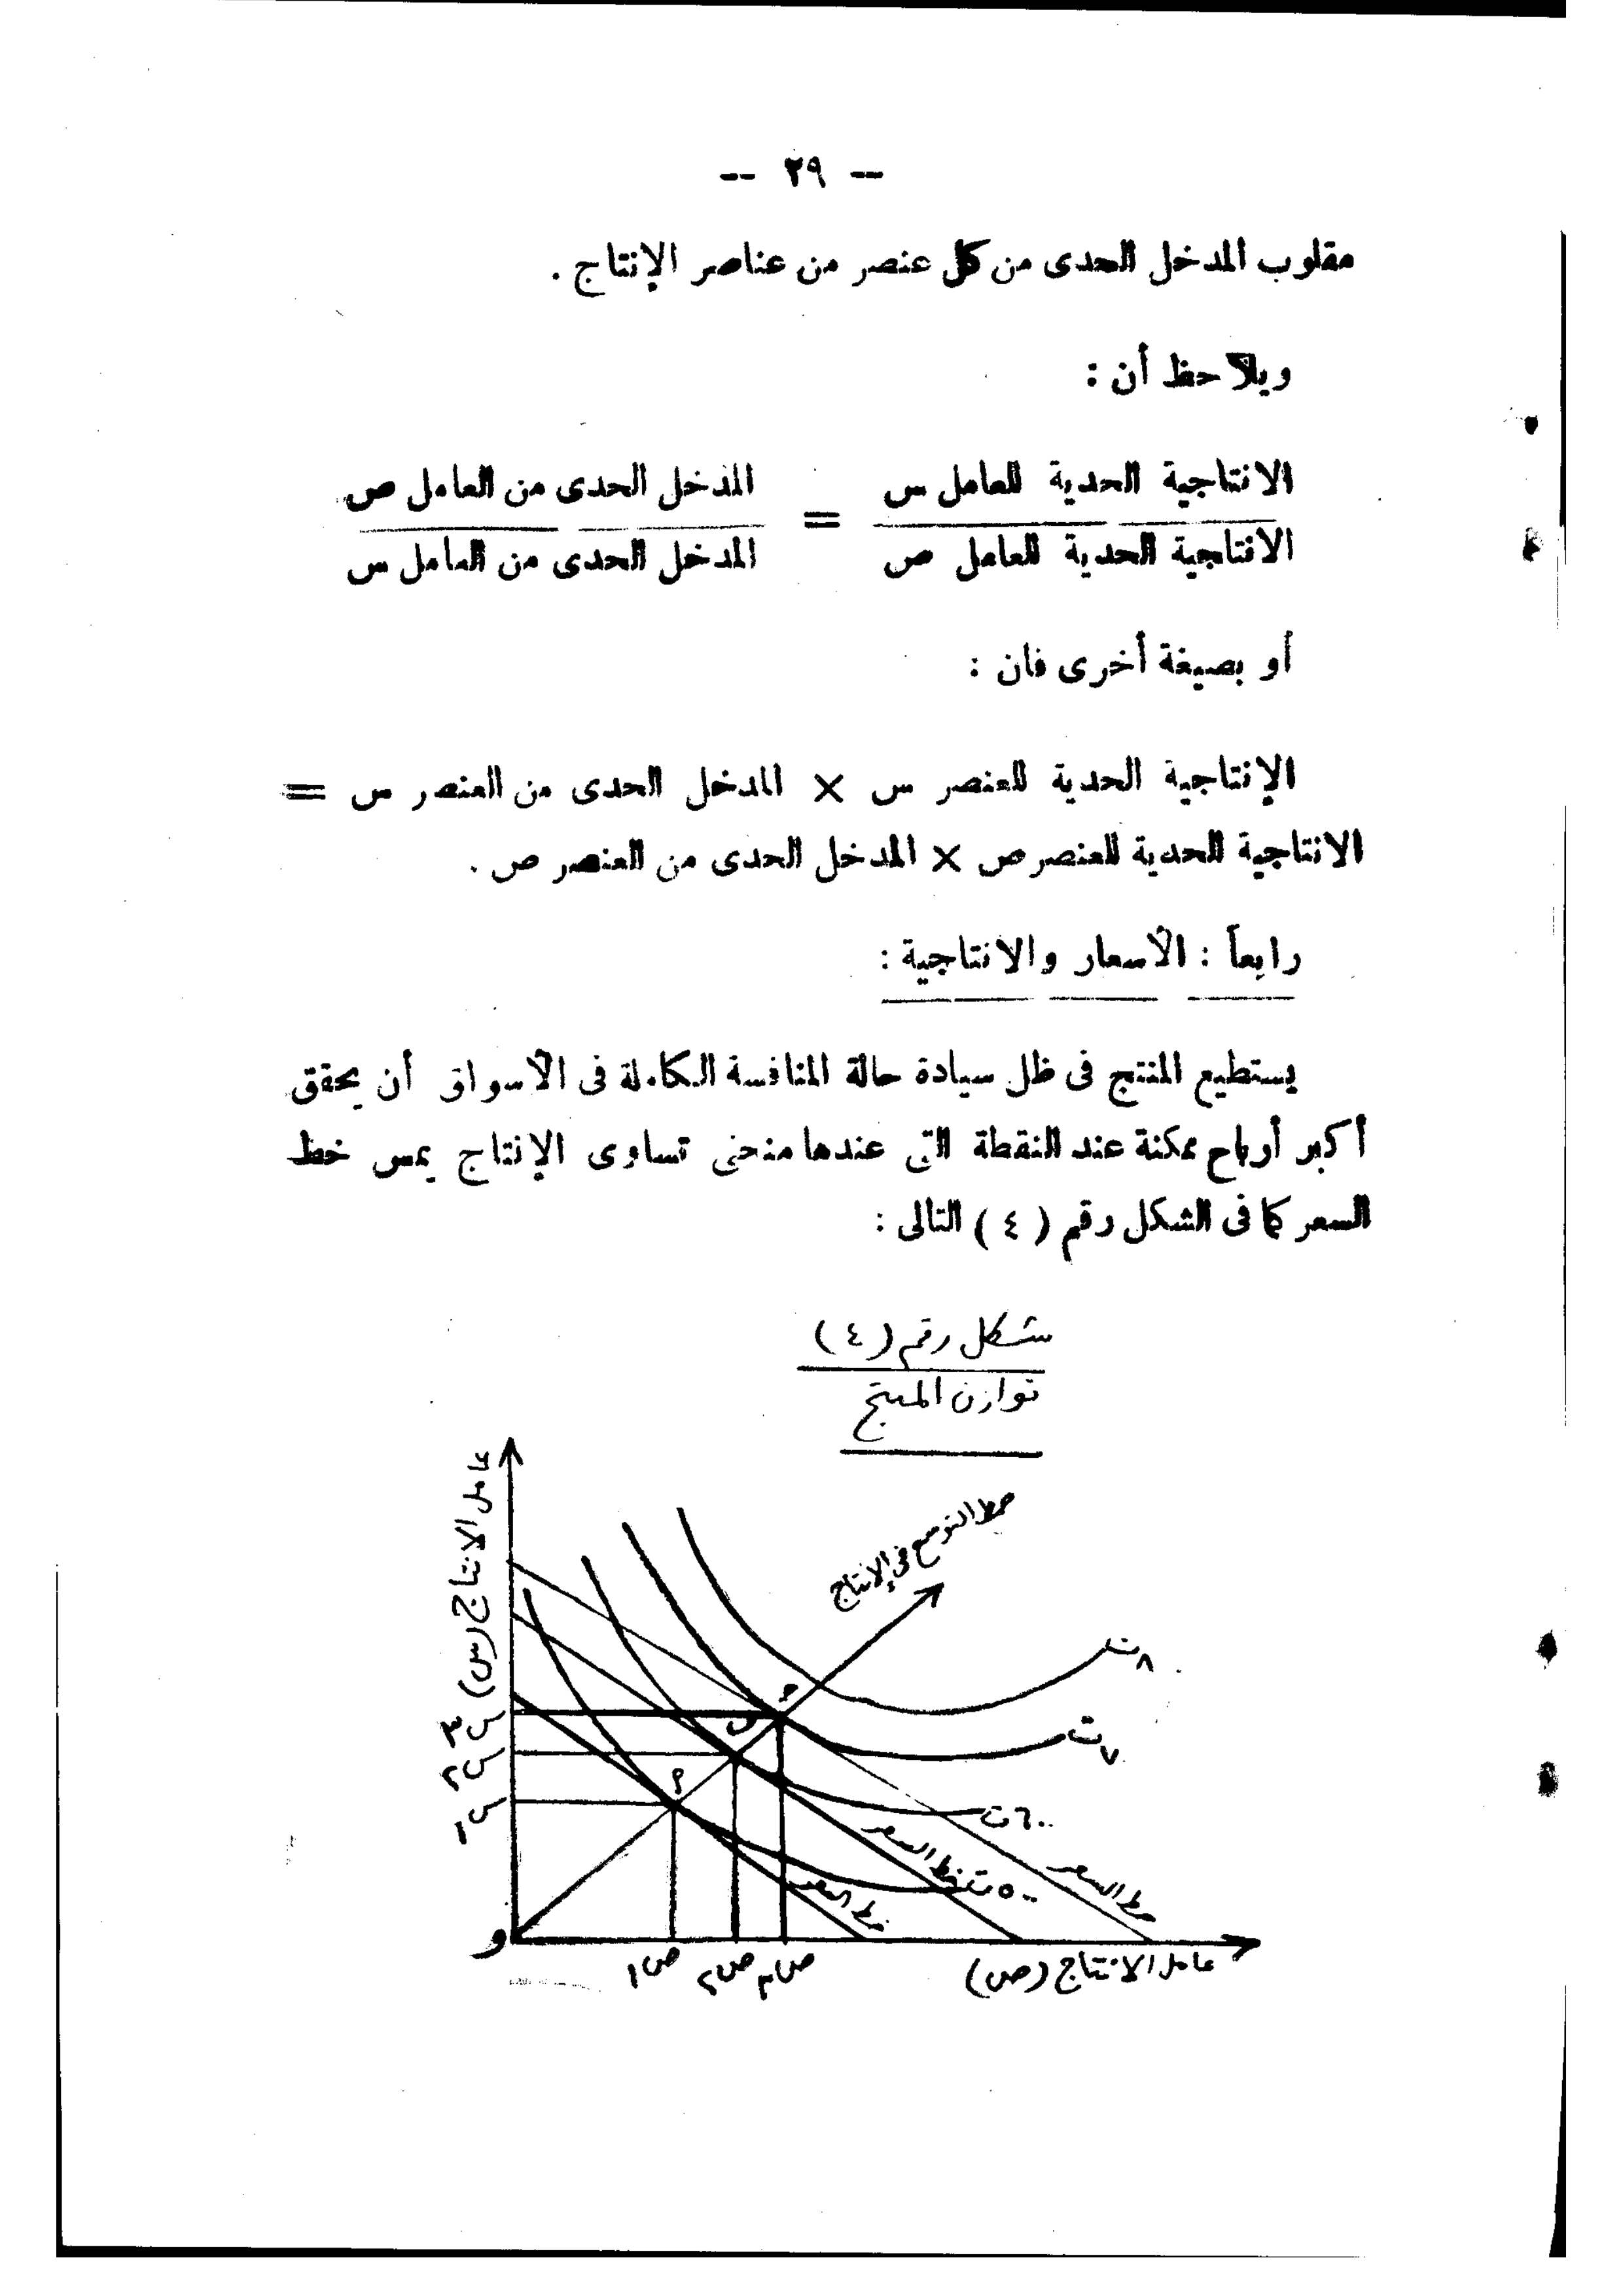 -- ٢٩ --
مقلوب المدخل الحدى من كل عنصر من عناصر الإنتاج .
ويلاحظ أن :
الانتاجية الحدية للعامل س = المدخل الحدى من العامل ص
الانتاجية الحدية للعامل ص المدخل الحدى من العامل س
أو بصيغة أخرى فان :
الإنتاجية الحدية للعنصر س × المدخل الحدى من العنصر س =
الانتاجية الحدية للعنصر ص × المدخل الحدى من العنصر ص .
رابعاً : الأسعار والانتاجية :
يستطيع المنتج فى ظل سيادة حالة المنافسة الكاملة فى الأسواق أن يحقق
أكبر أرباح ممكنة عند النقطة التى عندها منحنى تساوى الإنتاج يمس خط
السعر كما فى الشكل رقم ( ٤ ) التالى :
شكل رقم ( ٤ )
توازن المنتج
عامل الانتاج (س)
خط التوسع فى الإنتاج
ت٨
ت٧
ت٦٠٠
ت٥٠٠
خط السعر
خط السعر
خط السعر
س٣
س٢
س١
و
ص١
ص٢
ص٣
عامل الانتاج (ص)